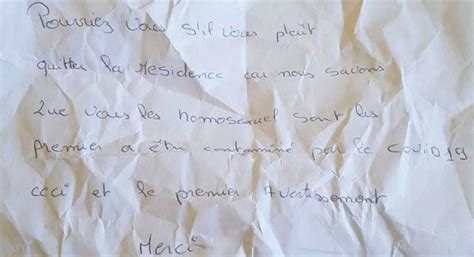 Pourriez vous s'il vous plaît
quitter la residence car nous savons
que vous les homosexuel sont les
premier a être contaminé par le COVID 19
ceci et le premier Avertissement
Merci